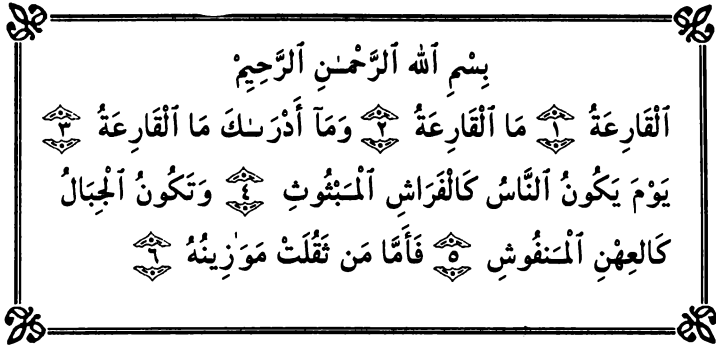 بِسْمِ ٱللَّهِ ٱلرَّحْمَـٰنِ ٱلرَّحِيمِْ
ٱلْقَارِعَةُ ١ مَا ٱلْقَارِعَةُ ٢ وَمَآ أَدْرَىٰكَ مَا ٱلْقَارِعَةُ ٣
يَوْمَ يَكُونُ ٱلنَّاسُ كَالْفَرَاشِ ٱلْمَبْثُوثِ ٤ وَتَكُونُ ٱلْجِبَالُ
كَالعِهْنِ ٱلْمَنفُوشِ ٥ فَأَمَّا مَن ثَقُلَتْ مَوَٰزِينُهُ ٦